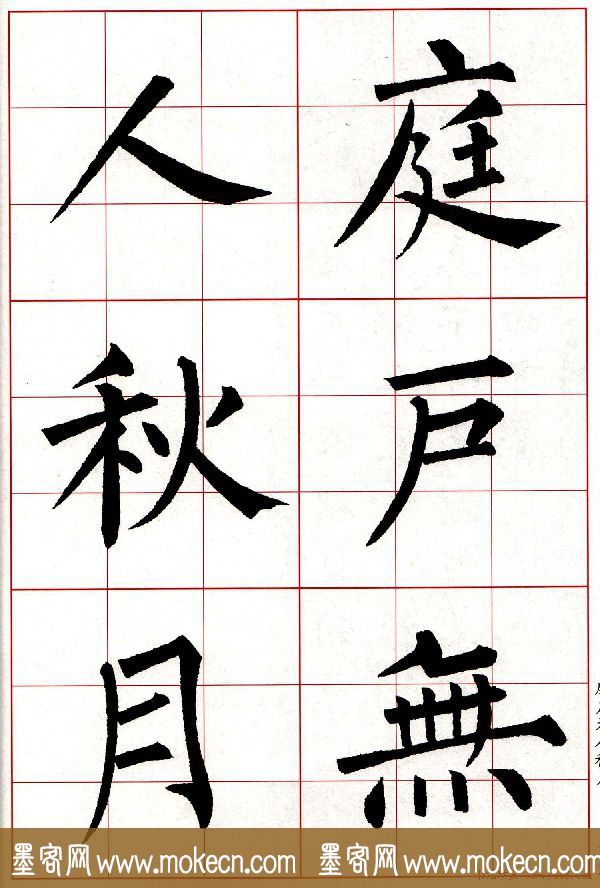 庭戸無
人秋月
墨客网 www.mokecn.com 墨客网 www.mokecn.com